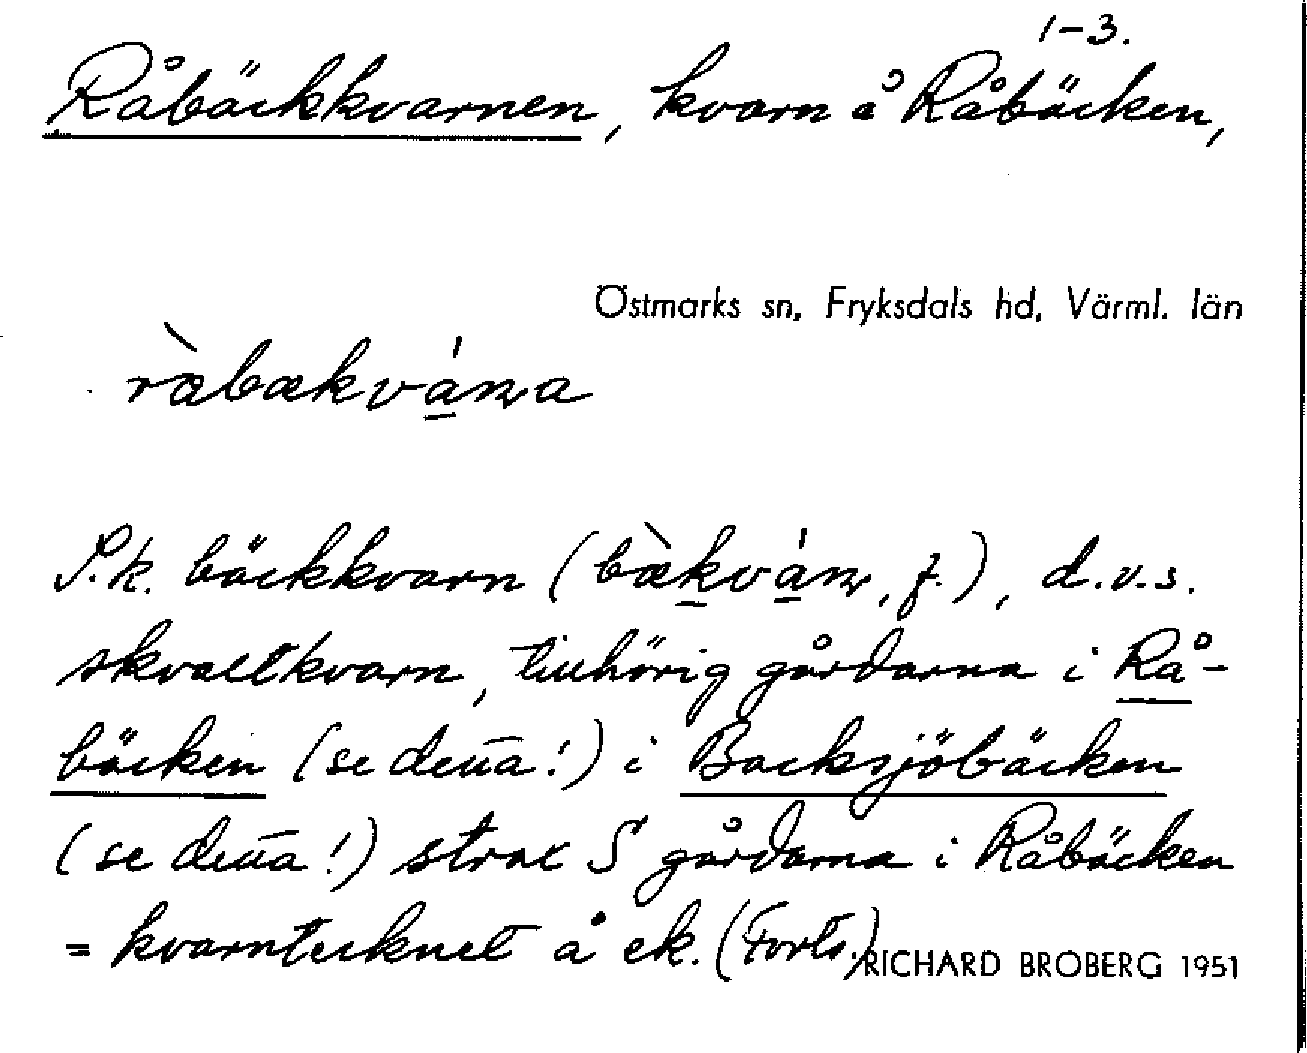 1-3.
Råbäckkvarnen, kvarn å Råbäcken,
Östmarks sn, Fryksdals hd, Värml. län
ràbækvána
S.k. bäckkvarn (bækván, f.), d.v.s.
skvaltkvarn, tillhörig gårdarna i Rå-
bäcken (se detta!) i Backsjöbäcken
(se detta!) strax S gårdarna i Råbäcken
= kvarntecknet å ek. (Forts.)
RICHARD BROBERG 1951